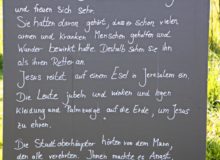 und freuen sich sehr.
Sie hatten davon gehört, dass er schon vielen
armen und kranken Menschen geholfen und
Wunder bewirkt hatte. Deshalb sahen sie ihn
als ihren Retter an.
Jesus reitet auf einem Esel in Jerusalem ein.
Die Leute jubeln und winken und legen
Kleidung und Palmzweige auf die Erde, um Jesus
zu ehren.
Die Stadtoberhäupter hörten von dem Mann,
den alle verehrten. Ihnen machte es Angst,